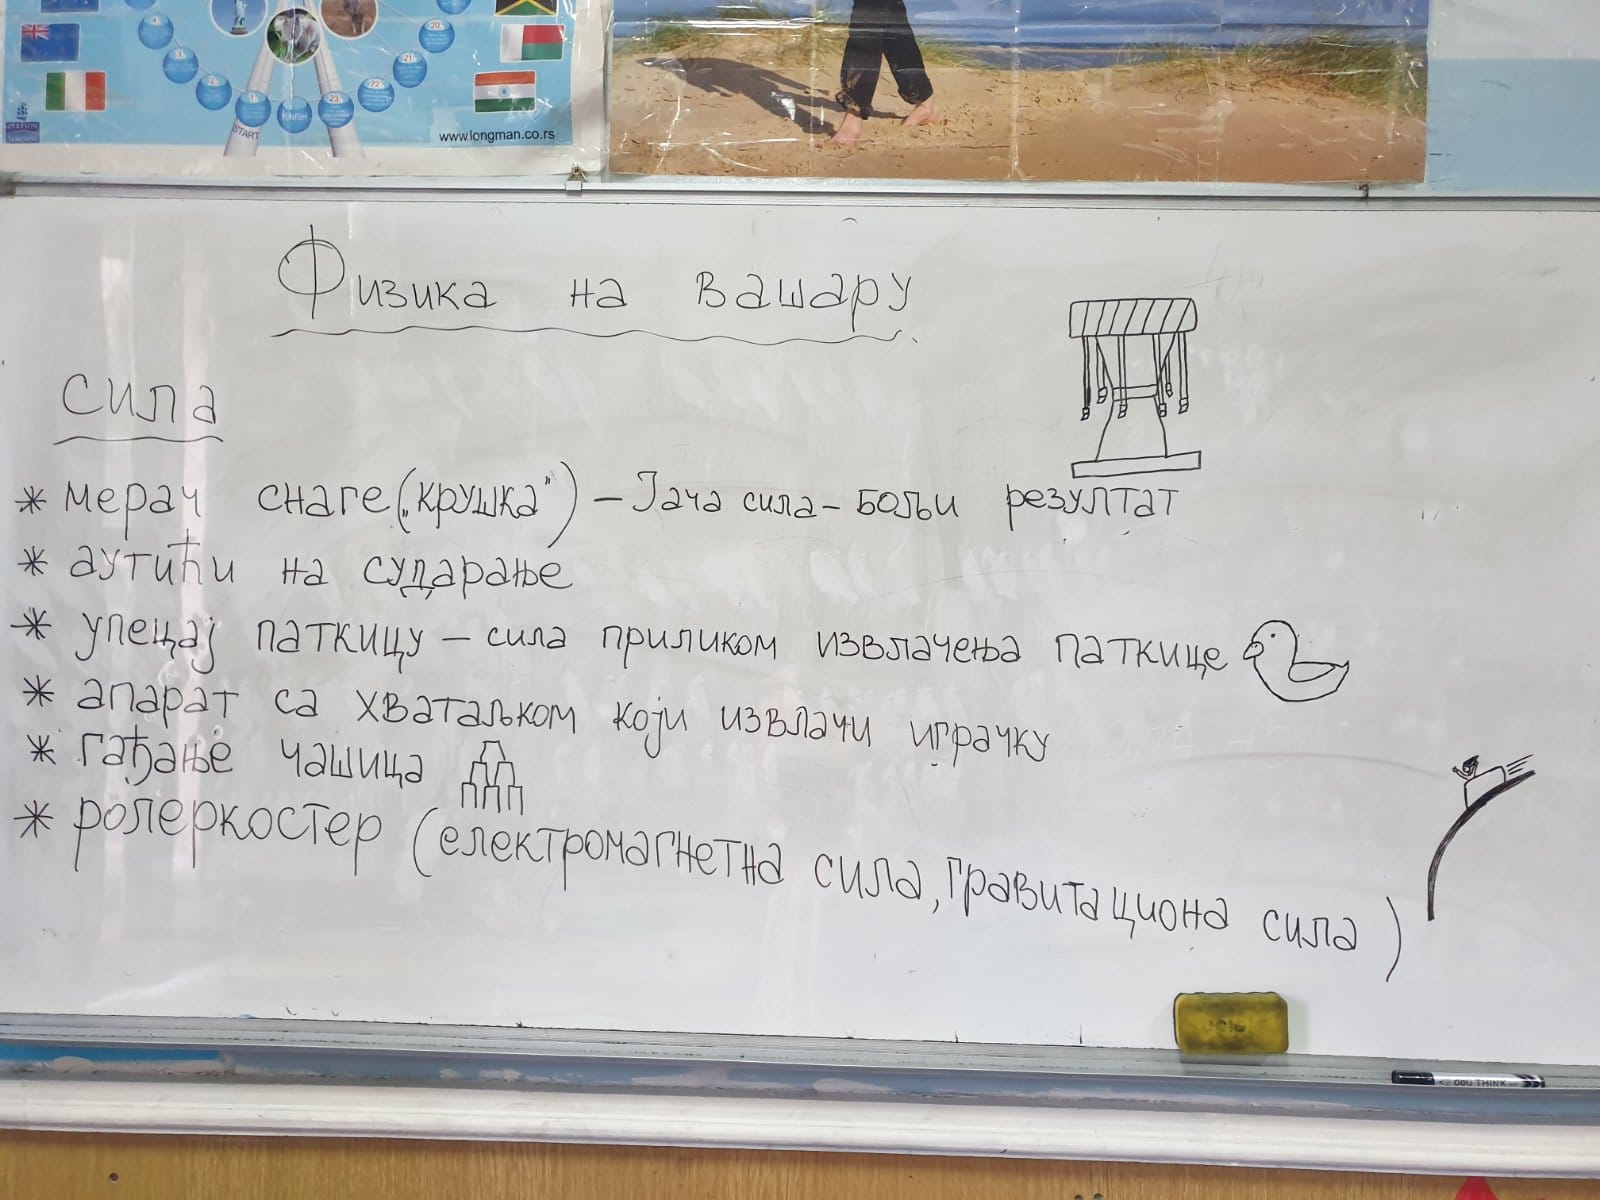 20.
3.
21.
2.
22.
1.
23.
FINISH
START
PEARSON
www.longman.co.rs
Физика на вашару
Сила
* мерач снаге („крушка") – Јача сила – бољи резултат
* аутићи на сударање
* упецај паткицу – сила приликом извлачења паткице
* апарат са хватаљком који извлачи играчку
* гађање чашица
* ролеркостер (електромагнетна сила, гравитациона сила)